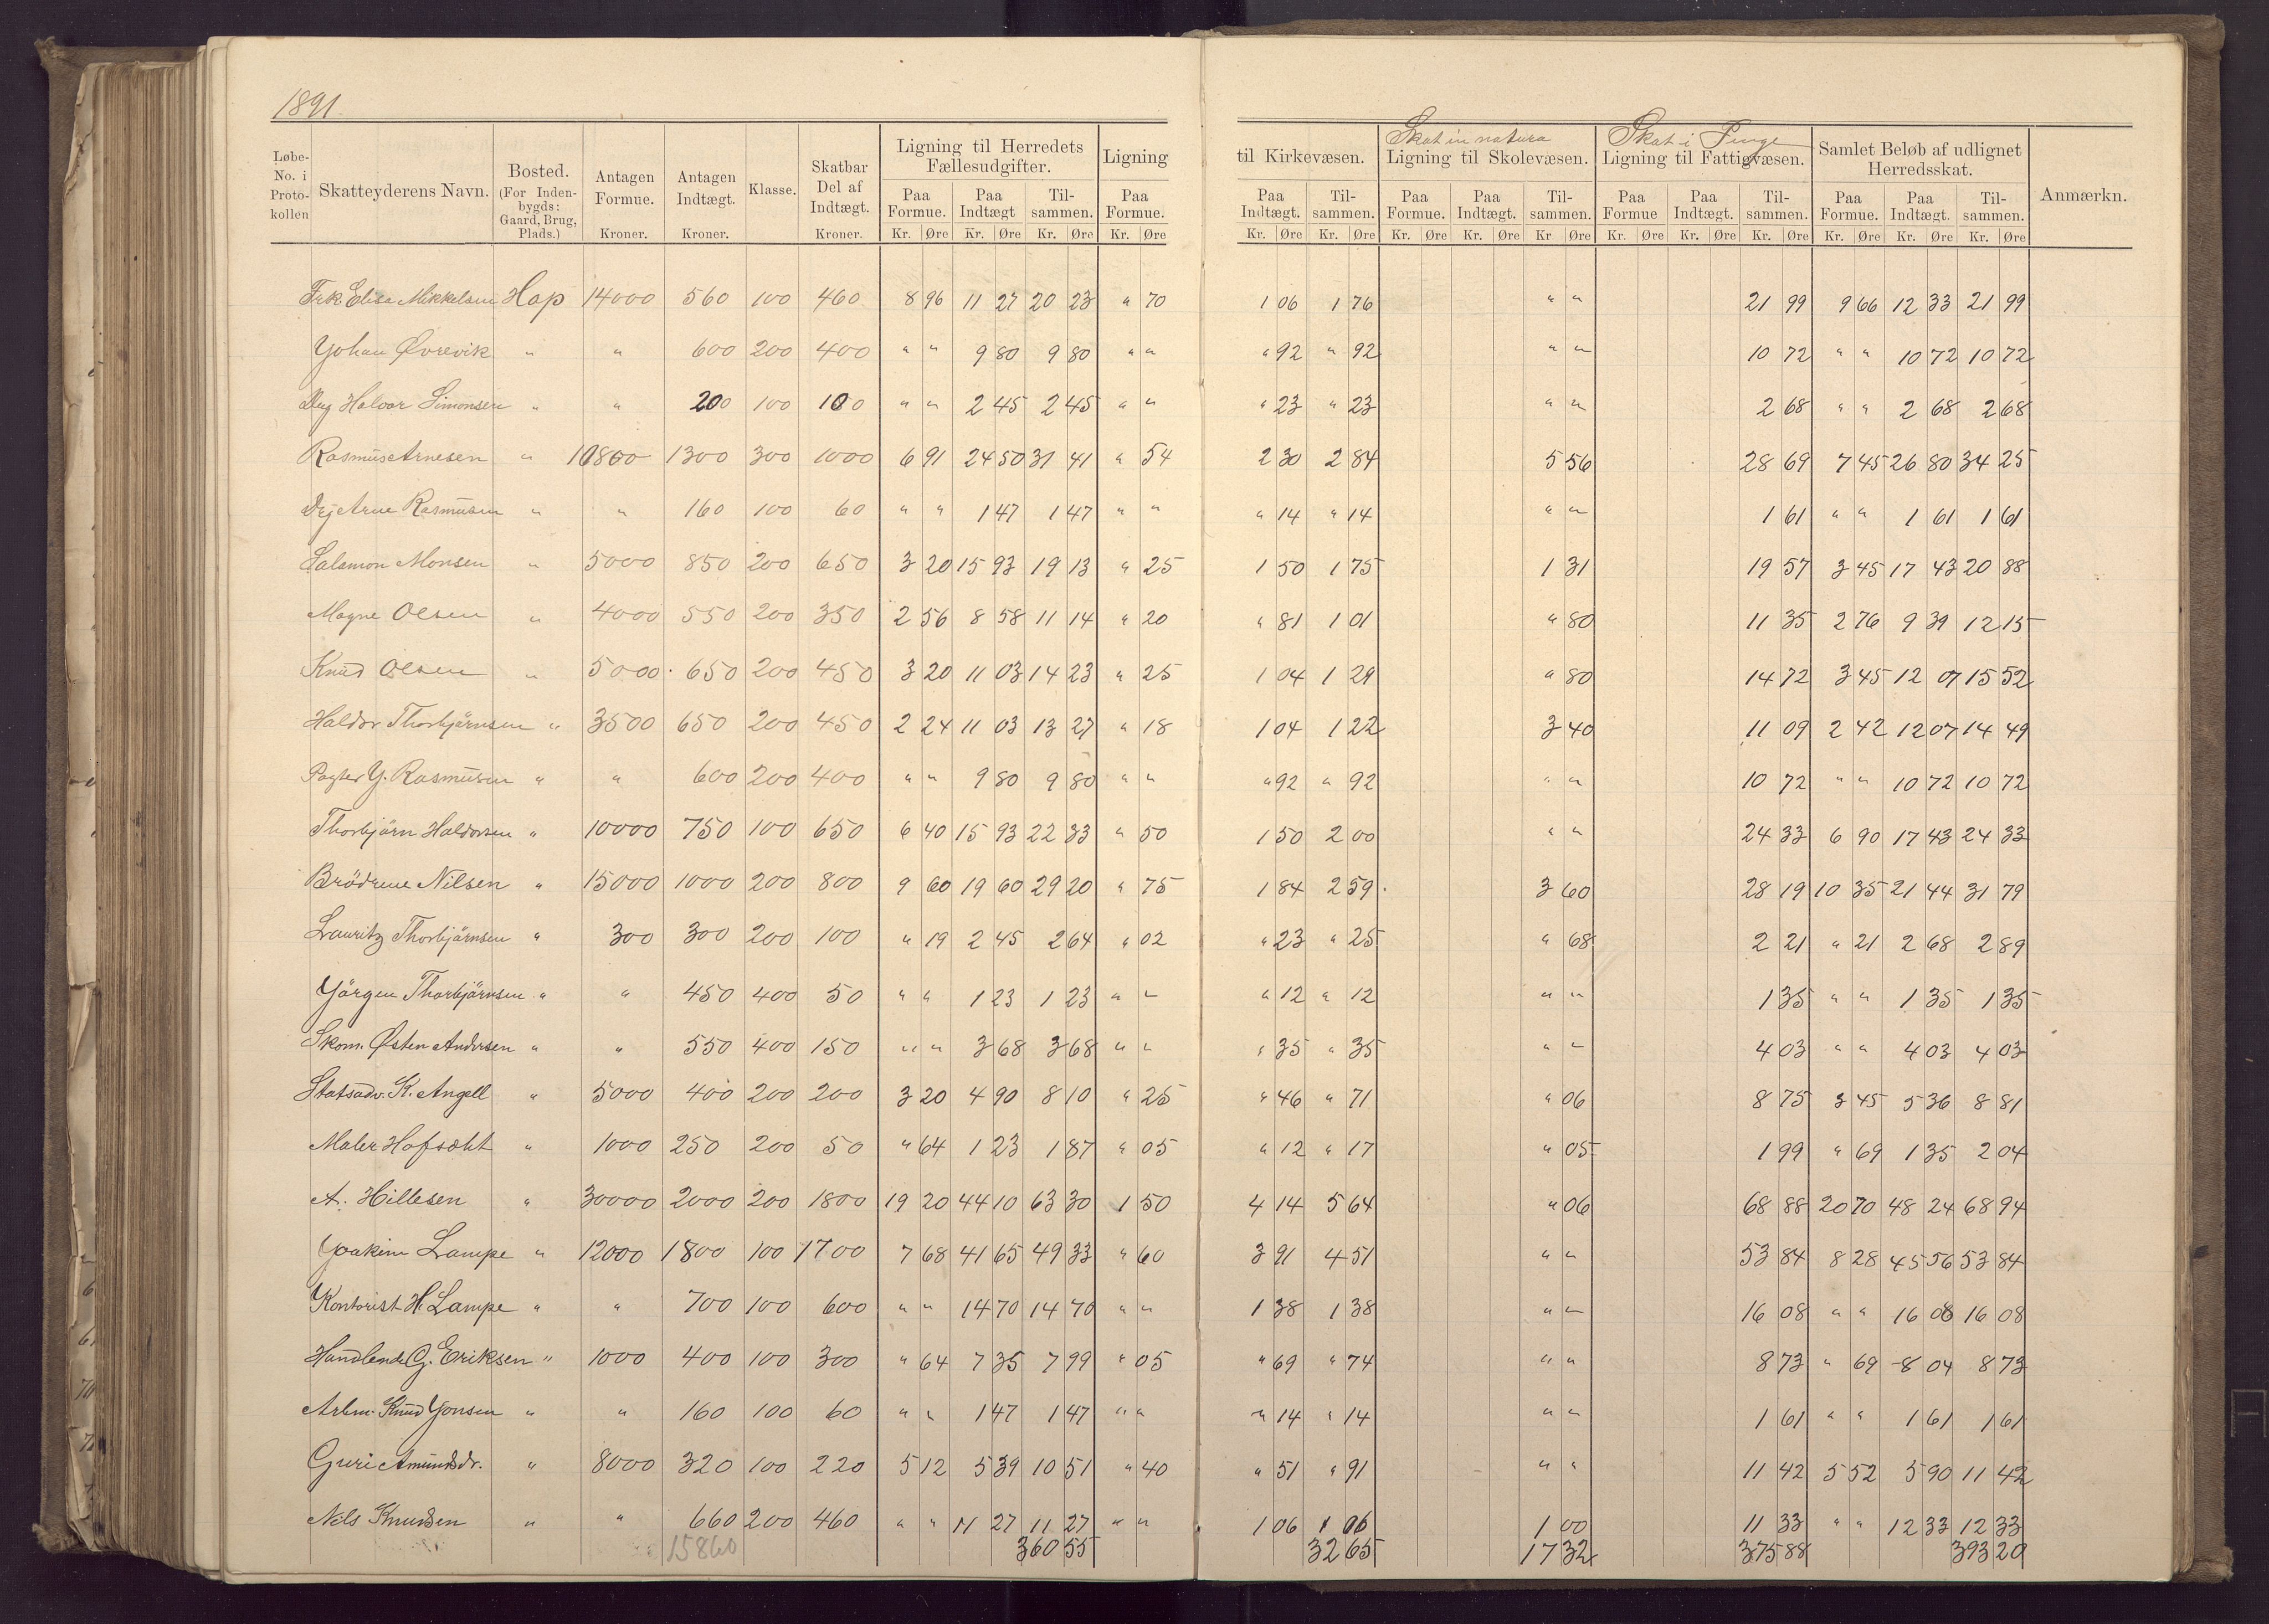 1891.
Løbe-No. i Proto-kollen | Skatteyderens Navn. | Bosted. (For Inden-bygds: Gaard, Brug, Plads.) | Antagen Formue. Kroner. | Antagen Indtægt. Kroner. | Klasse. | Skatbar Del af Indtægt. Kroner. | Ligning til Herredets Fællesudgifter. Paa Formue. Kr. Øre | Paa Indtægt Kr. Øre | Til-sammen. Kr. Øre | Ligning Paa Formue. Kr. Øre | til Kirkevæsen. Paa Indtægt. Kr. Øre | Til-sammen. Kr. Øre | Skat in natura Ligning til Skolevæsen. Paa Formue. Kr. Øre | Paa Indtægt. Kr. Øre | Til-sammen. Kr. Øre | Skat i Penge Ligning til Fattigvæsen. Paa Formue Kr. Øre | Paa Indtægt. Kr. Øre | Til-sammen. Kr. Øre | Samlet Beløb af udlignet Herredsskat. Paa Formue. Kr. Øre | Paa Indtægt. Kr. Øre | Til-sammen. Kr. Øre | Anmærkn.
Frk Elisa Mikkelsen Hop 14000 560 100 460 8 96 11 27 20 23 " 70 1 06 1 76 " " 21 99 9 66 12 33 21 99
Yohan Øvrevik " " 600 200 400 " " 9 80 9 80 " " " 92 " 92 " " 10 72 " " 10 72 10 72
Halvor Simonsen " " 200 100 100 " " 2 45 2 45 " " " 23 " 23 " " 2 68 " " 2 68 2 68
Rasmus Arnesen " 10800 1300 300 1000 6 91 24 50 31 41 " 54 2 30 2 84 5 56 28 69 7 45 26 80 34 25
Arne Rasmusen " " 160 100 60 " " 1 47 1 47 " " " 14 " 14 " " 1 61 " " 1 61 1 61
Salamon Monsen " 5000 850 200 650 3 20 15 93 19 13 " 25 1 50 1 75 1 31 19 57 3 45 17 43 20 88
Magne Olsen " 4000 550 200 350 2 56 8 58 11 14 " 20 " 81 1 01 " 80 11 35 2 76 9 39 12 15
Knud Olsen " 5000 650 200 450 3 20 11 03 14 23 " 25 1 04 1 29 " 80 14 72 3 45 12 07 15 52
Haldor Thorbjørnsen " 3500 650 200 450 2 24 11 03 13 27 " 18 1 04 1 22 3 40 11 09 2 42 12 07 14 49
Pagter Y. Rasmusen " " 600 200 400 " " 9 80 9 80 " " " 92 " 92 " " 10 72 " " 10 72 10 72
Thorbjörn Haldorsen " 10000 750 100 650 6 40 15 93 22 33 " 50 1 50 2 00 " " 24 33 6 90 17 43 24 33
Brödrene Nilsen " 15000 1000 200 800 9 60 19 60 29 20 " 75 1 84 2 59 3 60 28 19 10 35 21 44 31 79
Lauritz Thorbjörnsen " 300 300 200 100 " 19 2 45 2 64 " 02 " 23 " 25 " 68 2 21 " 21 2 68 2 89
Yörgen Thorbjörnsen " " 450 400 50 " " 1 23 1 23 " " " 12 " 12 " " 1 35 " " 1 35 1 35
Skom. Østen Andersen " " 550 400 150 " " 3 68 3 68 " " " 35 " 35 " " 4 03 " " 4 03 4 03
Statsadv. K. Angell " 5000 400 200 200 3 20 4 90 8 10 " 25 " 46 " 71 " 06 8 75 3 45 5 36 8 81
Maler " 1000 250 200 50 " 64 1 23 1 87 " 05 " 12 " 17 " 05 1 99 " 69 1 35 2 04
A. Hillesen " 30000 2000 200 1800 19 20 44 10 63 30 1 50 4 14 5 64 " 06 68 88 20 70 48 24 68 94
Yoakim Lampe " 12000 1800 100 1700 7 68 41 65 49 33 " 60 3 91 4 51 " " 53 84 8 28 45 56 53 84
Kontorist H. Lampe " " 700 100 600 " " 14 70 14 70 " " 1 38 1 38 " " 16 08 " " 16 08 16 08
Handlende G. Eriksen " 1000 400 100 300 " 64 7 35 7 99 " 05 " 69 " 74 " " 8 73 " 69 8 04 8 73
Arbm. Knud Yonsen " " 160 100 60 " " 1 47 1 47 " " " 14 " 14 " " 1 61 " " 1 61 1 61
Guri Amundsdr. " 8000 320 100 220 5 12 5 39 10 51 " 40 " 51 " 91 " " 11 42 5 52 5 90 11 42
Nils Knudsen " " 660 200 460 " " 11 27 11 27 " " 1 06 1 06 1 00 11 33 " " 12 33 12 33
15860 360 55 32 65 17 32 375 88 393 20